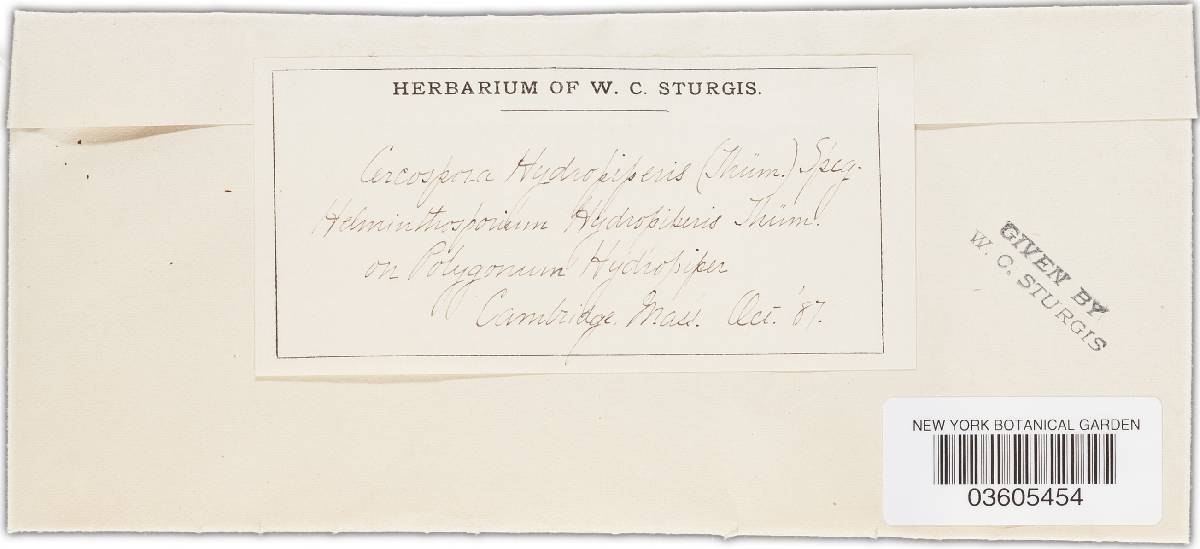 HERBARIUM OF W. C. STURGIS.
Cercospora Hydropiperis (Thüm.) Speg.
Helminthosporium Hydropiperis Thüm.
on Polygonum Hydropiper
Cambridge. Mass. Oct. '87.
GIVEN BY
W. C. STURGIS
NEW YORK BOTANICAL GARDEN
03605454